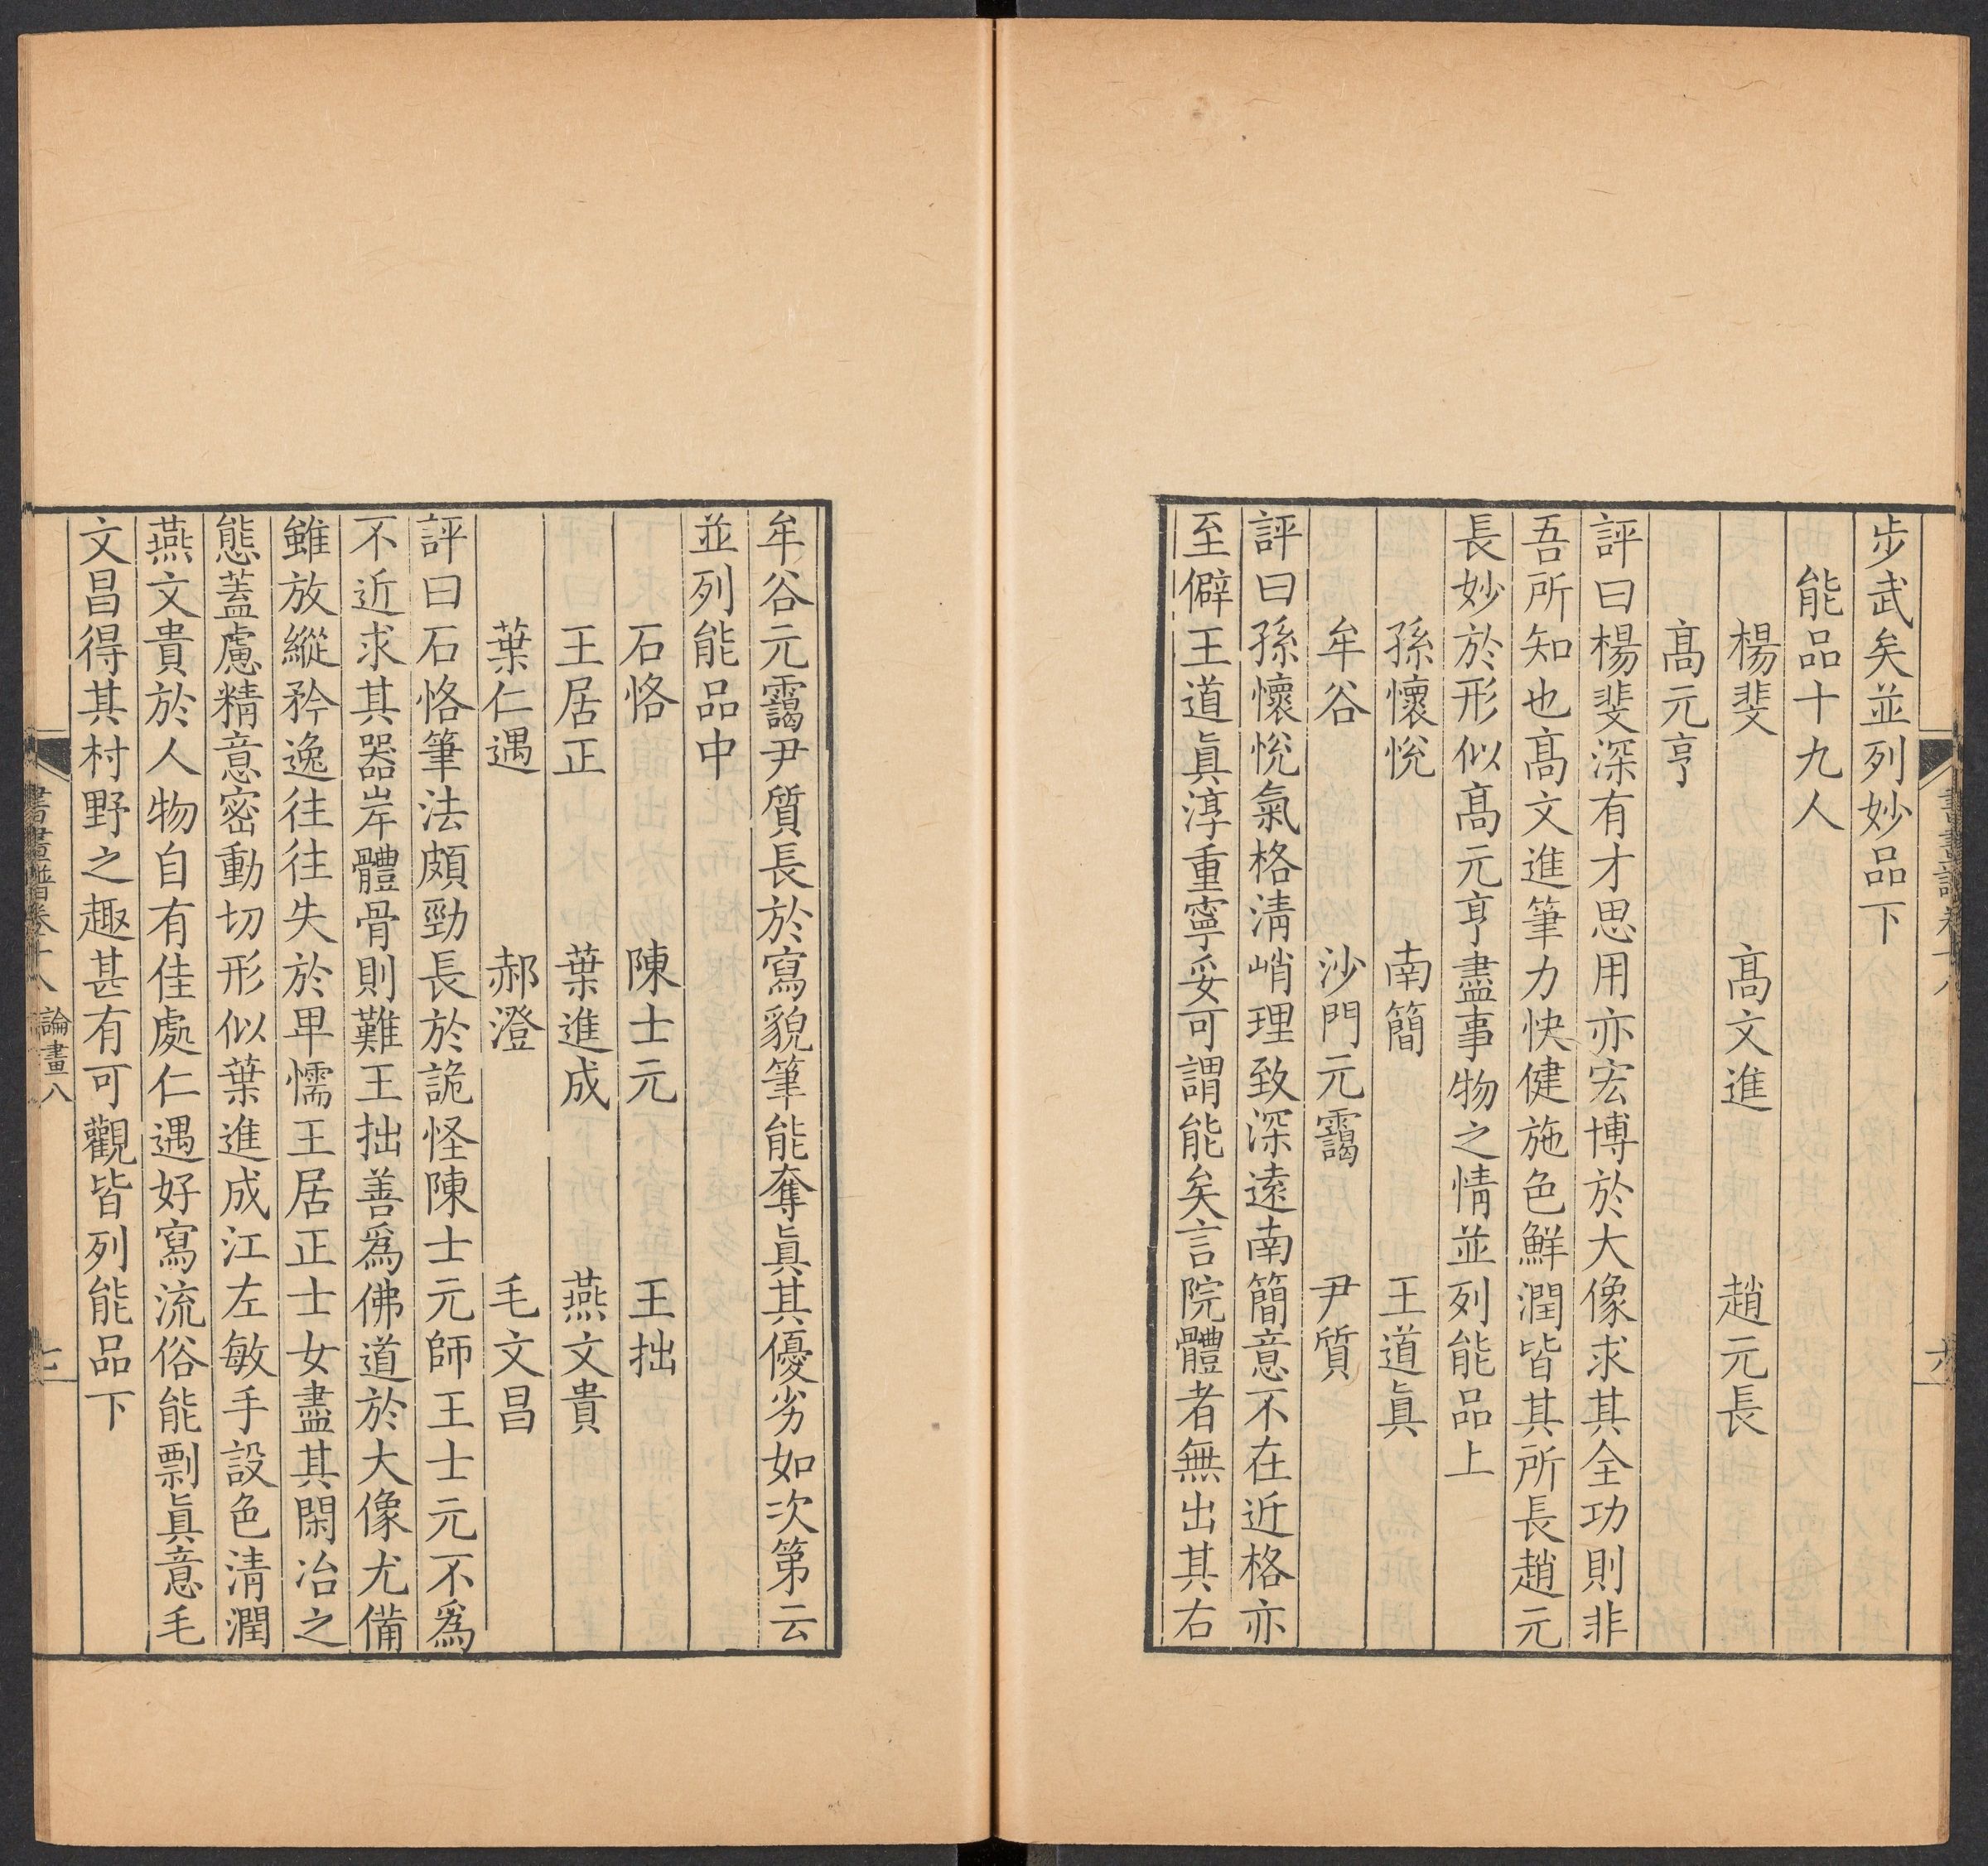 步武矣並列妙品下
能品十九人
楊斐 高文進 趙元長
高元亨
評曰楊斐深有才思用亦宏博於大像求其全功則非
吾所知也高文進筆力快健施色鮮潤皆其所長趙元
長妙於形似高元亨盡事物之情並列能品上
孫懷悅 南簡 王道眞
牟谷 沙門元靄 尹質
評曰孫懷悅氣格淸峭理致深遠南簡意不在近格亦
至僻王道眞淳重寧妥可謂能矣言院體者無出其右
牟谷元靄尹質長於寫貌筆能奪眞其優劣如次第云
並列能品中
石恪 陳士元 王拙
王居正 葉進成 燕文貴
葉仁遇 郝澄 毛文昌
評曰石恪筆法頗勁長於詭怪陳士元師王士元不爲
不近求其器岸體骨則難王拙善爲佛道於大像尤備
雖放縱矜逸往往失於卑懦王居正士女盡其閑冶之
態蓋慮精意密動切形似葉進成江左敏手設色淸潤
燕文貴於人物自有佳處仁遇好寫流俗能剽眞意毛
文昌得其村野之趣甚有可觀皆列能品下
書畫譜卷十八 論畫八
七